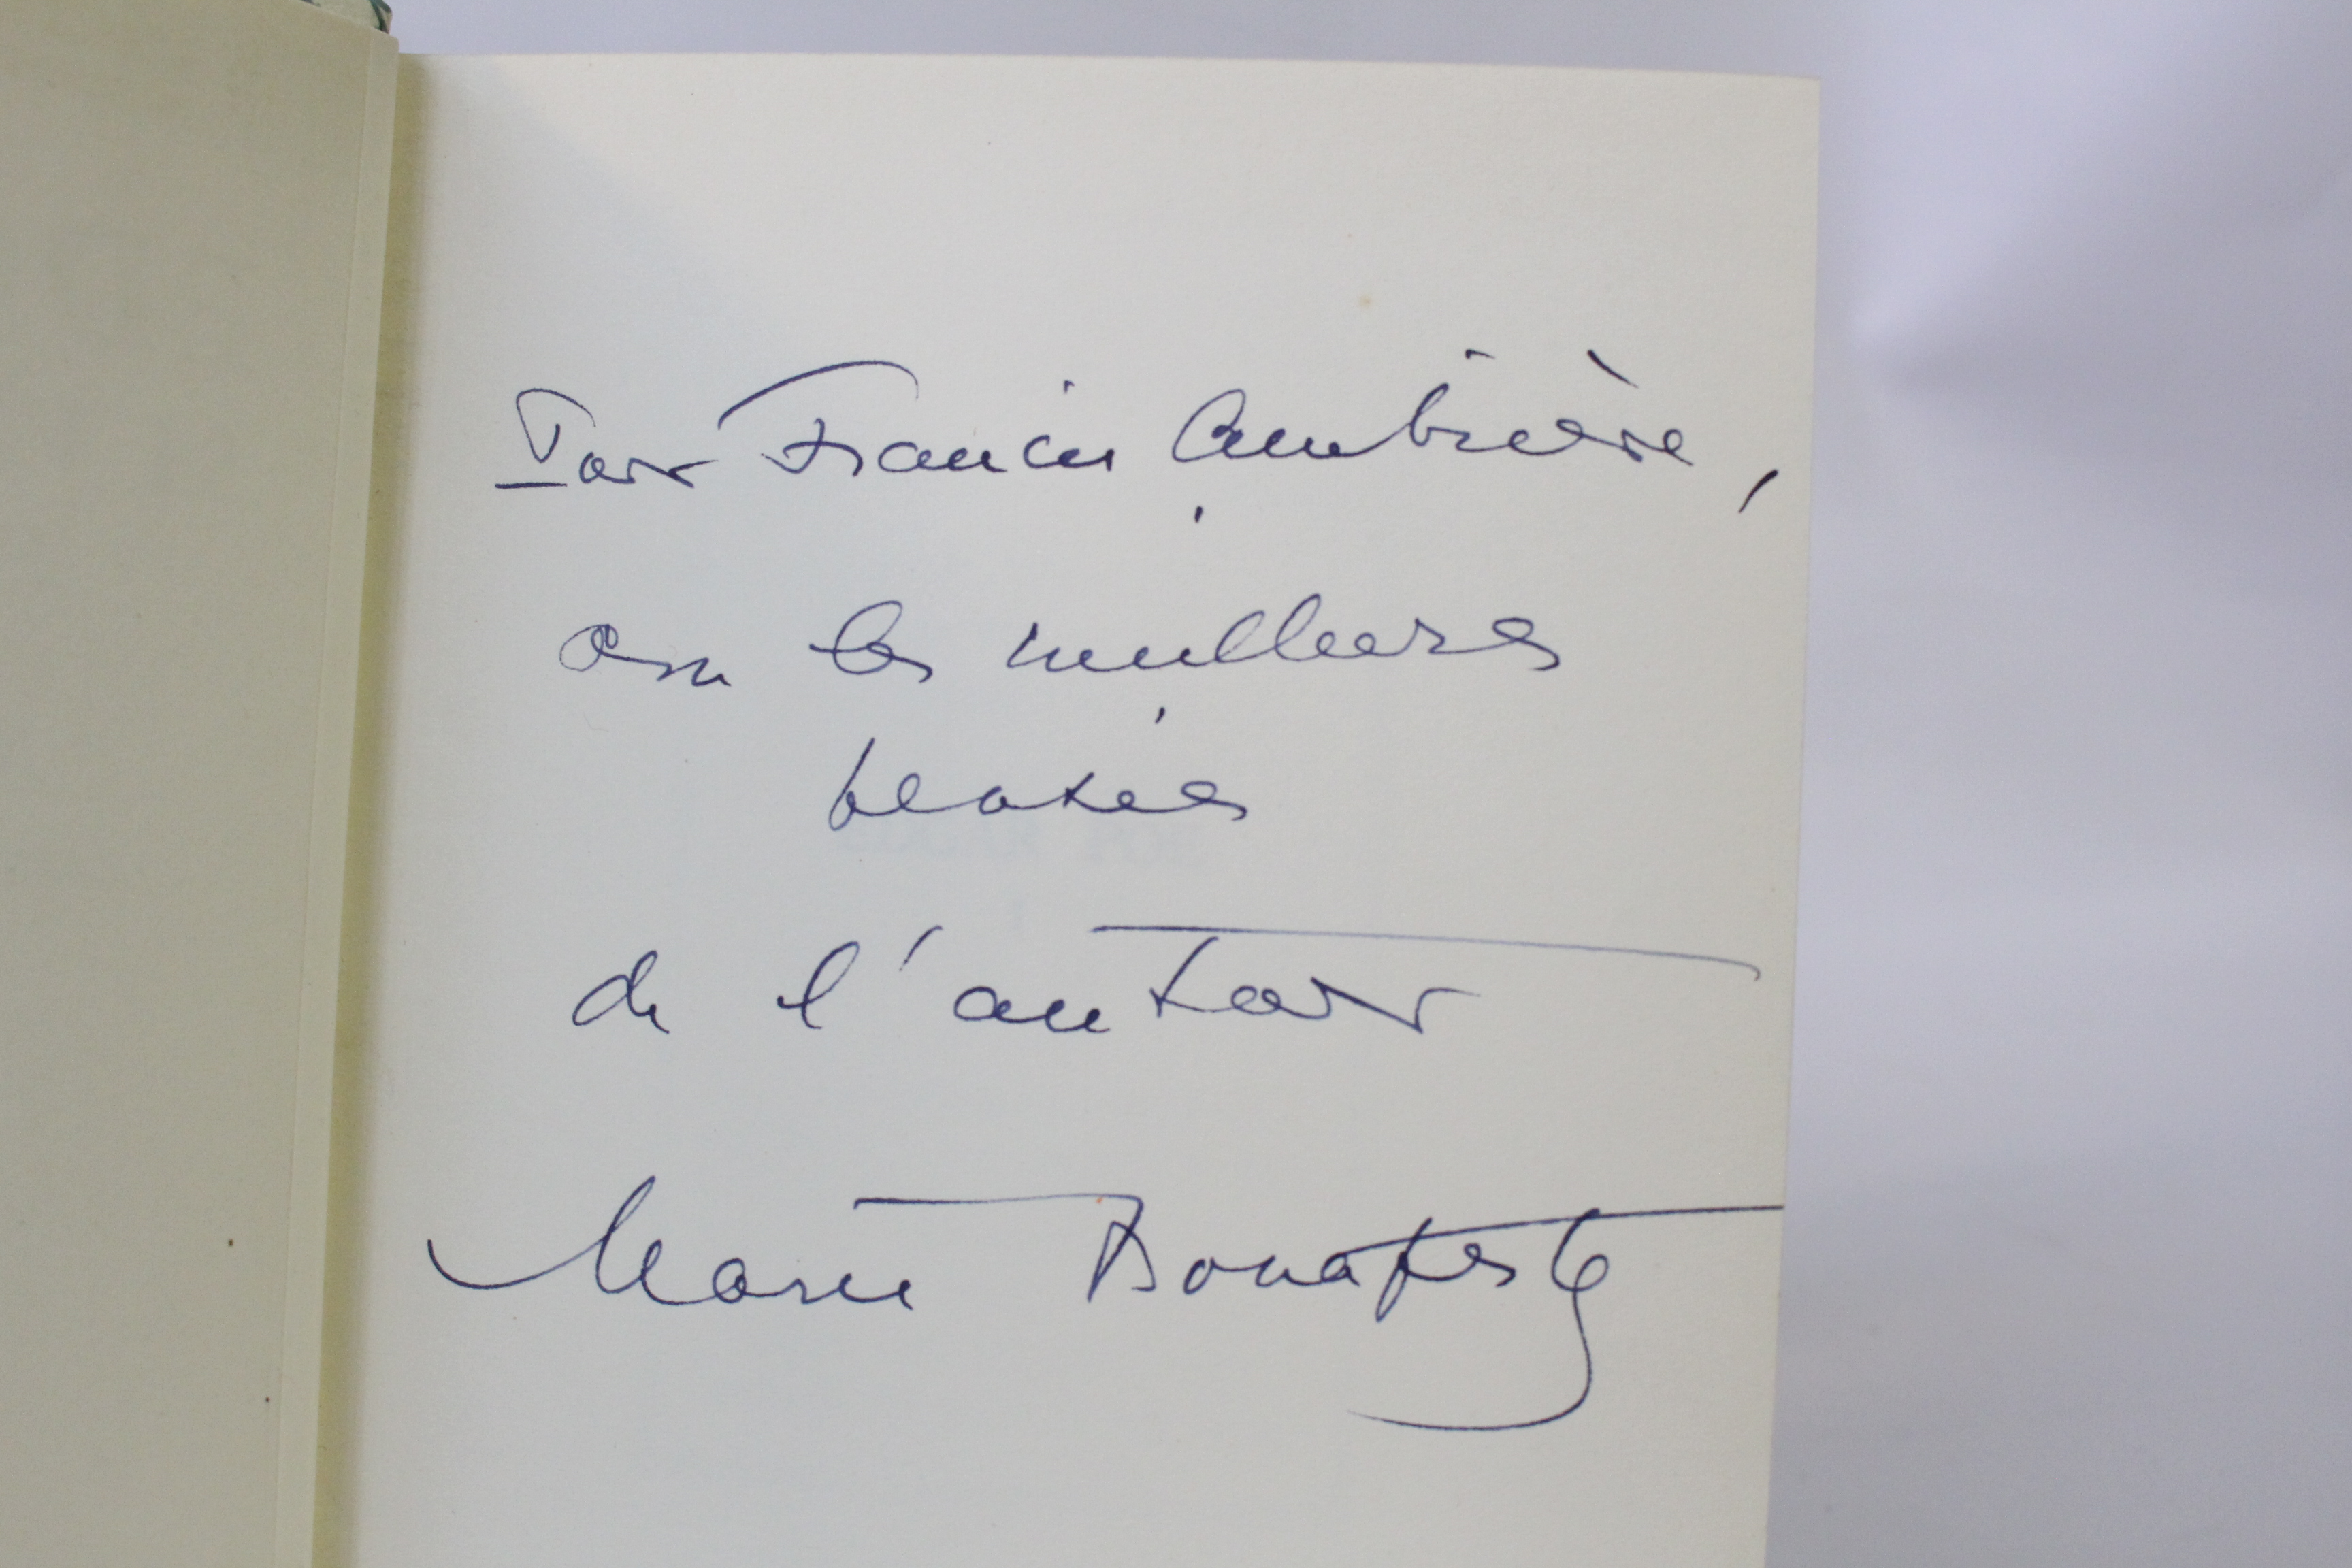 Pour Francis Ambrière,
avec les meilleures
pensées
de l'auteur
Marie Bonaparte
EDGAR POE
I